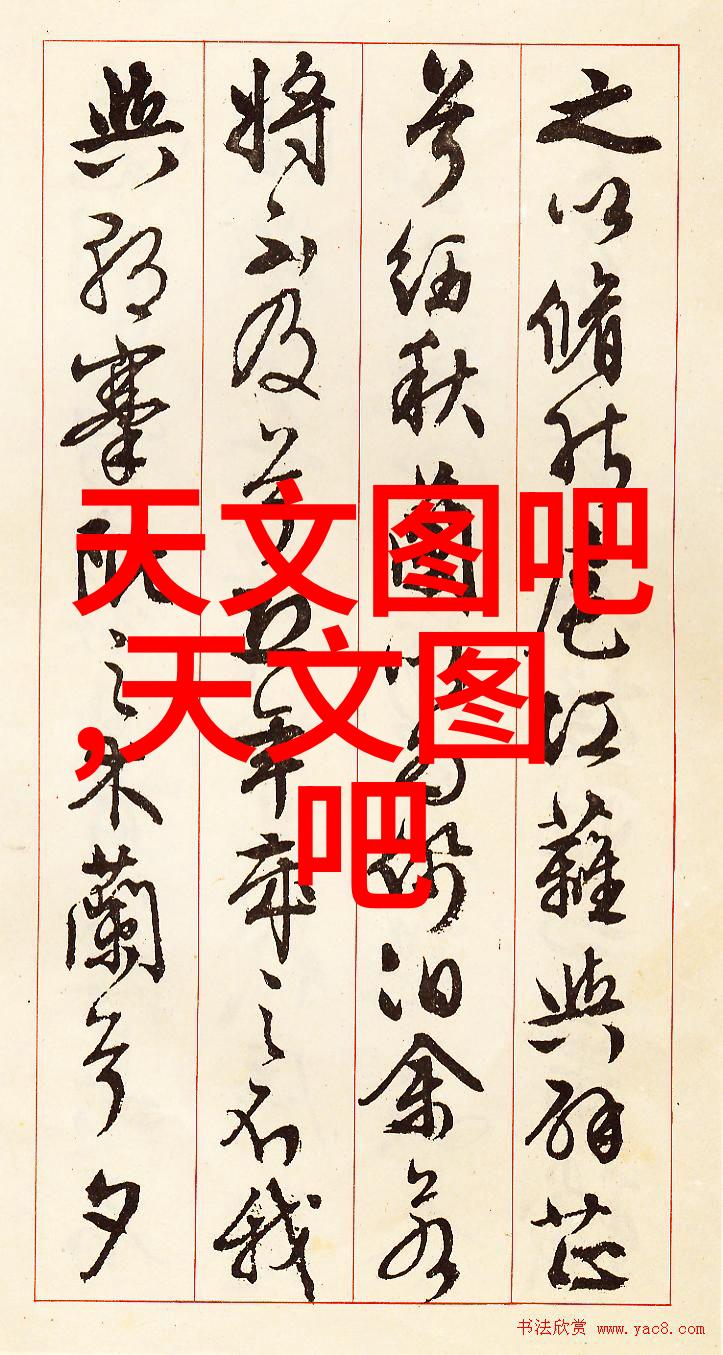 之以脩能扈江蘺與辟芷
兮紉秋蘭以為佩汩余若
將不及兮恐年歲之不我
與朝搴阰之木蘭兮夕
天文图吧
,天文图
吧
书法欣赏 www.yac8.com